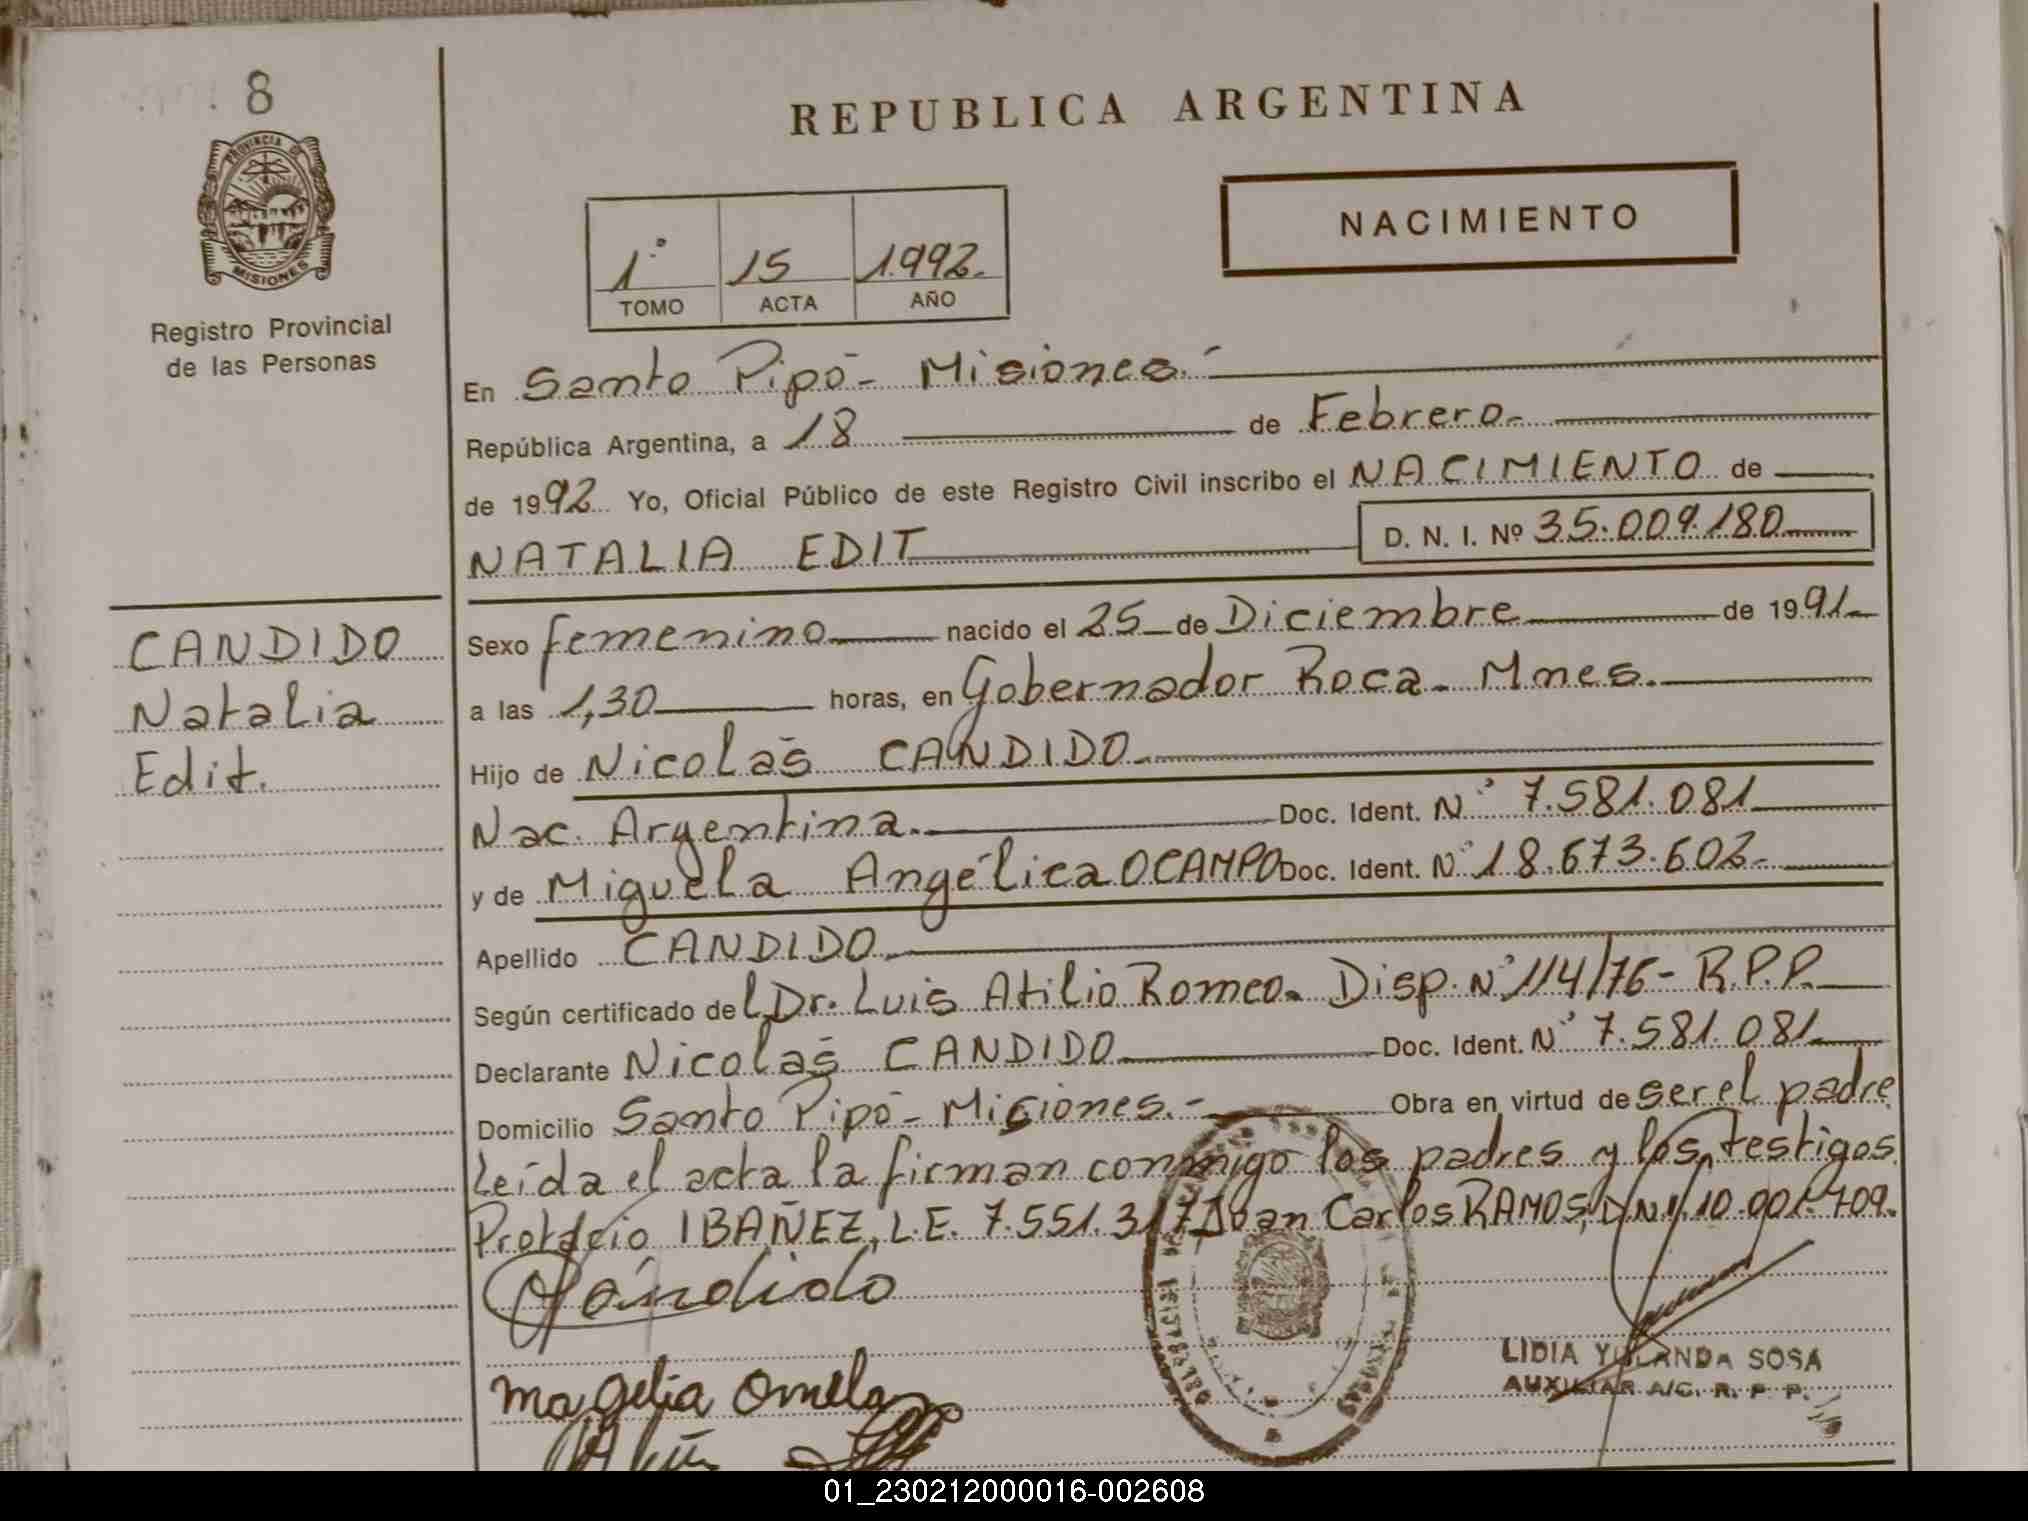 8
PROVINCIA DE
MISIONES
Registro Provincial
de las Personas
REPUBLICA ARGENTINA
NACIMIENTO
1° 15 1992.
TOMO ACTA AÑO
En Santo Pipó - Misiones.-
República Argentina, a 18 de Febrero.
de 1992 Yo, Oficial Público de este Registro Civil inscribo el NACIMIENTO de
NATALIA EDIT D. N. I. Nº 35.009.180
CANDIDO
Natalia
Edit.
Sexo femenino nacido el 25 de Diciembre de 1991
a las 1,30 horas, en Gobernador Roca - Mnes.
Hijo de Nicolás CANDIDO.
Nac. Argentina. Doc. Ident. N° 7.581.081
y de Miguela Angélica OCAMPO Doc. Ident. N° 18.673.602.
Apellido CANDIDO.
Según certificado del Dr. Luis Atilio Romeo. Disp. N° 114/76 - R.P.P.
Declarante Nicolás CANDIDO Doc. Ident. N° 7.581.081.
Domicilio Santo Pipó - Misiones.- Obra en virtud de ser el padre
Leída el acta la firman conmigo los padres y los testigos
Protacio IBAÑEZ, L.E. 7.551.317 Juan Carlos RAMOS, D.N.I. 10.001.709.
Cándido
LIDIA YOLANDA SOSA
AUXILIAR A/C. R. P. P.
01_230212000016-002608